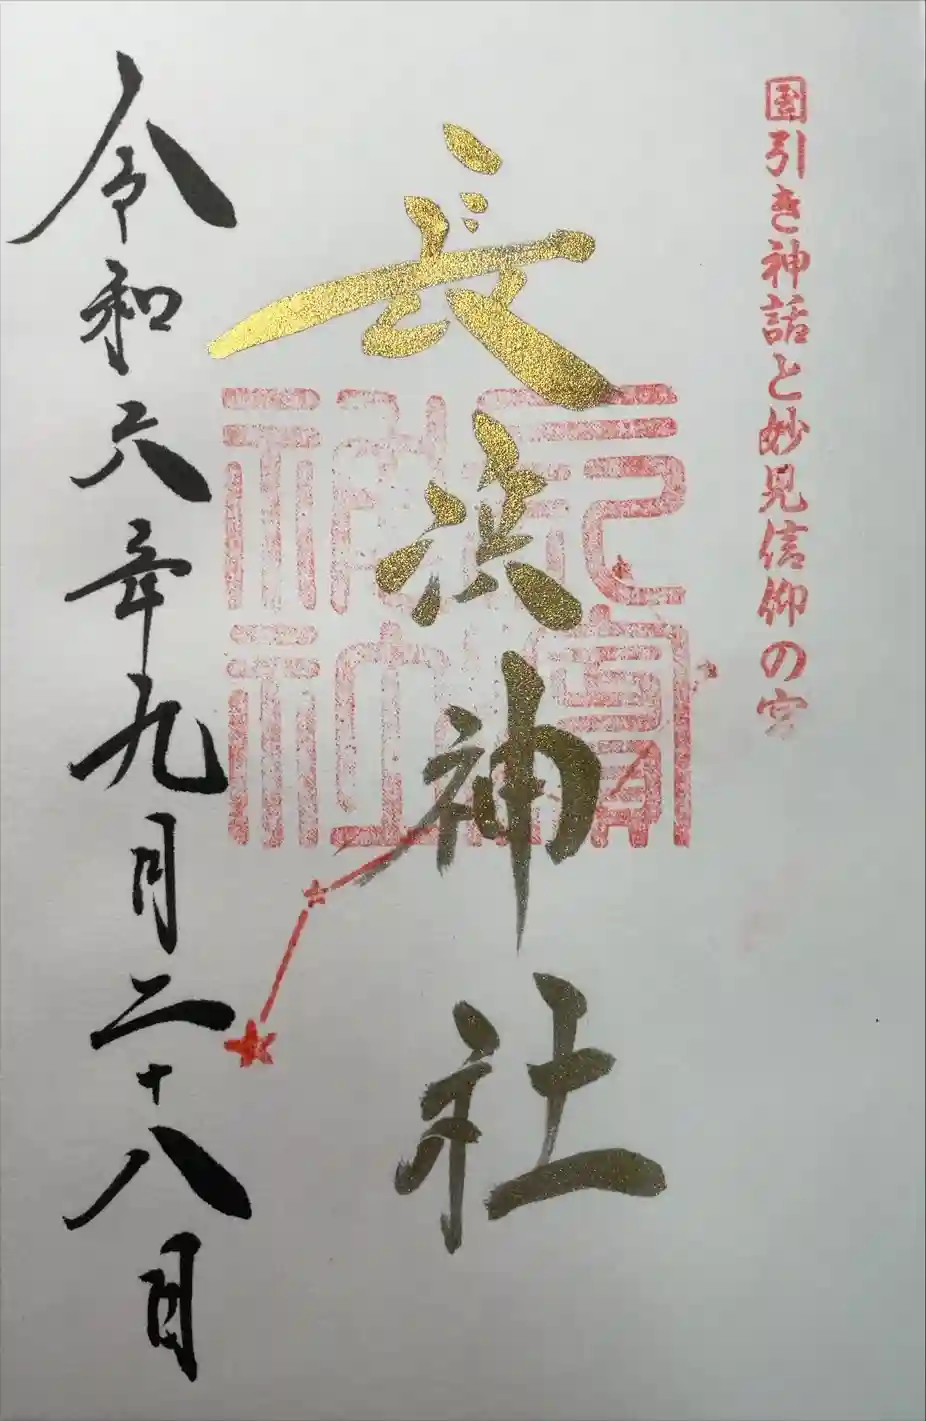 国引き神話と妙見信仰の宮
長浜神社
令和六年九月二十八日